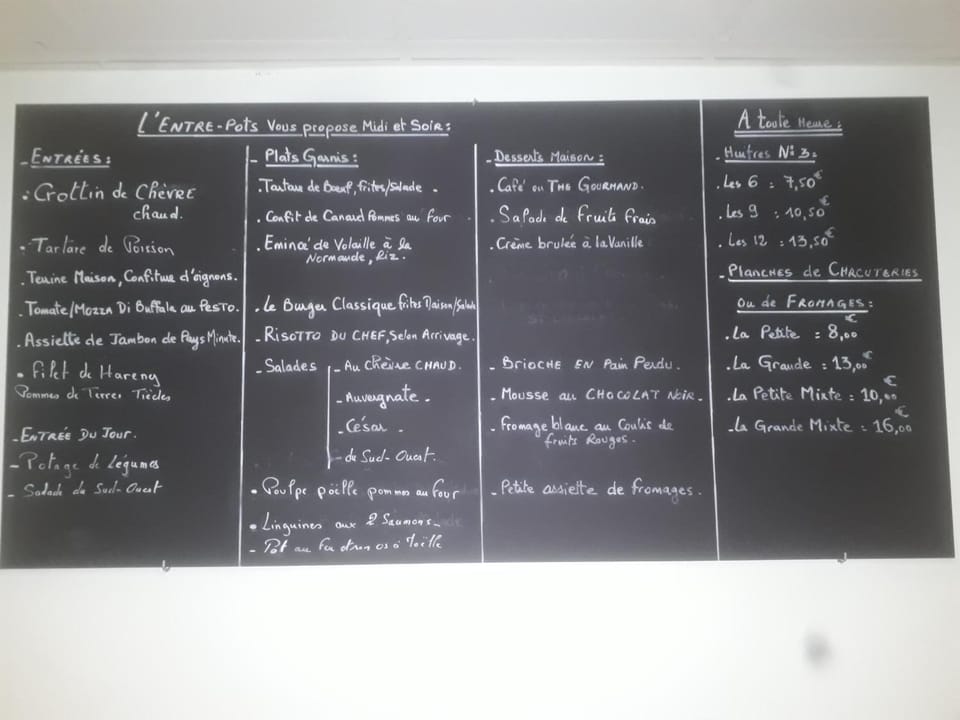 L'ENTRE-POTS Vous propose Midi et Soir:
- ENTRÉES:
. Crottin de CHÈVRE
chaud.
. Tartare de Poisson
Terrine Maison, Confiture d'oignons.
Tomate/Mozza Di Buffala au PESTO.
. Assiette de Jambon de Pays Minute.
. Filet de Hareng
Pommes de Terres Tièdes
- ENTRÉE DU JOUR.
- Potage de Légumes
- Salade du Sud-Ouest
- Plats Garnis:
. Tartare de Bœuf, frites/Salade.
. Confit de Canard Pommes au four
. Emincé de Volaille à la
Normande, Riz.
. Le Burger Classique frites Maison/Salade
- RISOTTO DU CHEF, Selon Arrivage.
- Salades - Au Chèvre CHAUD.
- Auvergnate.
- César.
- du Sud-Ouest.
. Poulpe poëlle pommes au four
. Linguines aux 2 Saumons
- Pot au feu et son os à Moëlle
- Desserts Maison:
. Café ou THE GOURMAND.
. Salade de Fruits frais
. Crème brulée à la Vanille
- BRIOCHE EN Pain Perdu.
- Mousse au CHOCOLAT NOIR.
- Fromage blanc au Coulis de
fruits Rouges.
- Petite assiette de fromages.
A toute Heure:
- Huitres N°3:
. Les 6 : 7,50€
. Les 9 : 10,50€
. Les 12 : 13,50€
- PLANCHES de CHACUTERIES
OU de FROMAGES:
. La Petite : 8,00€
. La Grande : 13,00€
. La Petite Mixte : 10,00€
. La Grande Mixte : 16,00€